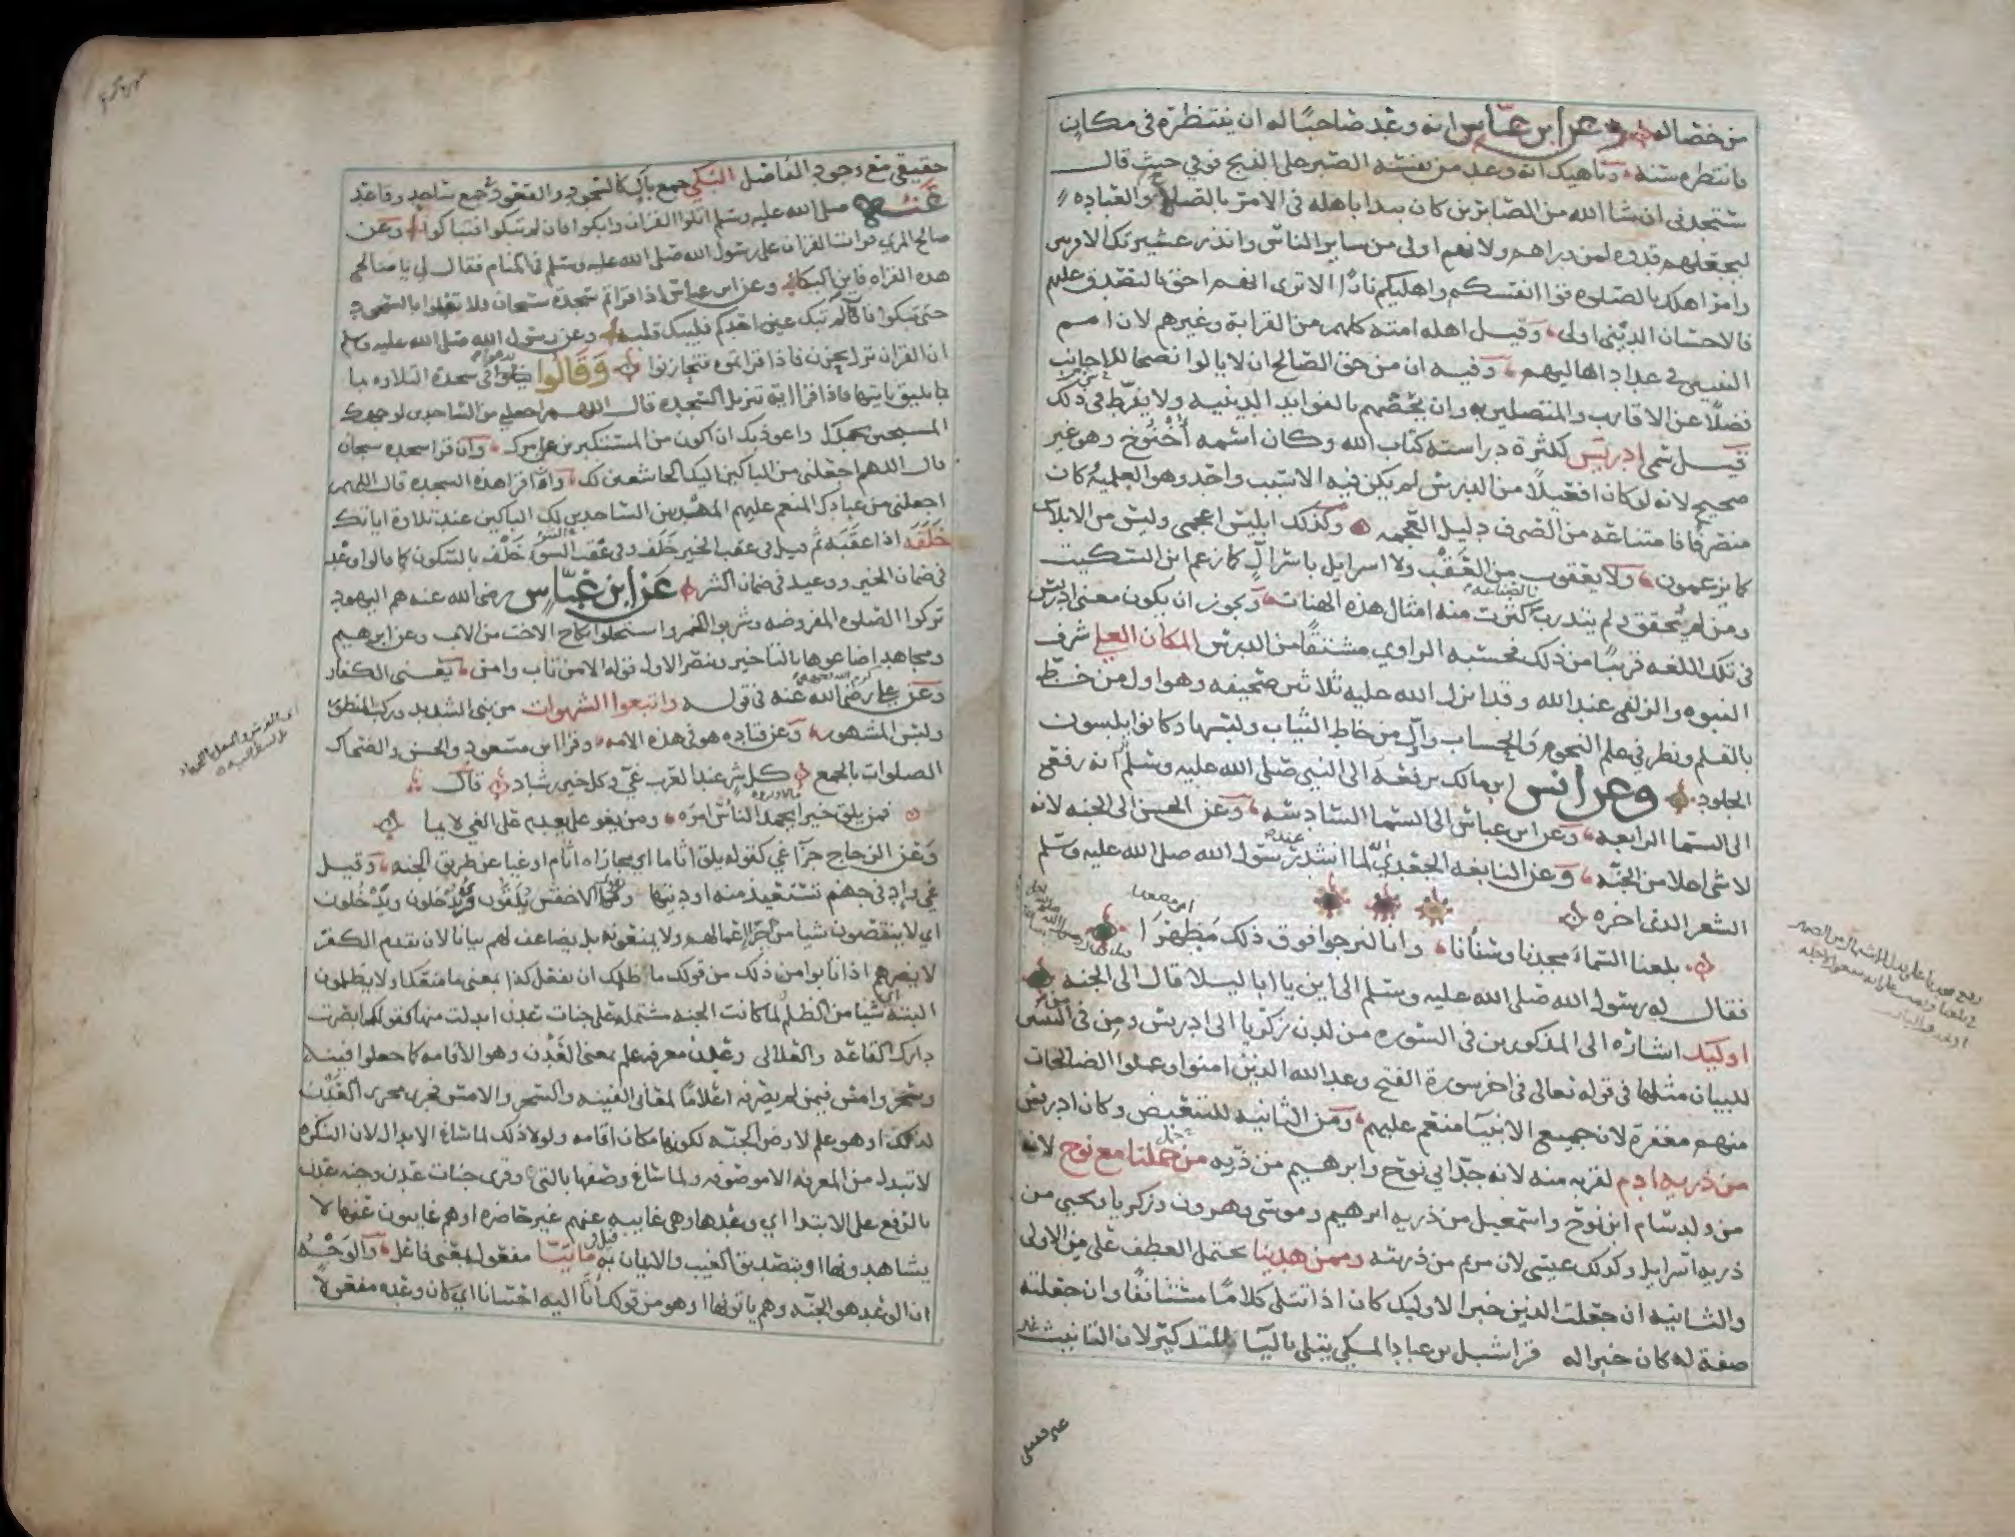 من خصاله وعن ابن عباس انه وعد صاحبًا له ان ينتظره في مكان
فانتظره سنة وناهيك انه وعد من نفسه الصبر على الذبح فوفي حيث قال
ستجدني ان شا الله من الصابرين كان يبدا باهله في الامر بالصلاح والعباده
ليجعلهم قدوه لمن وراهم ولانهم اولى من ساير الناس وانذر عشيرتك الاقربين
وامر اهلك بالصلوه قوا انفسكم واهليكم نارًا الا ترى انهم احق بالتصدق عليهم
فالاحسان الديني اولى وقيل اهله امته كلهم من القرابة وغيرهم لان امم
النبيين في عداد اهاليهم وفيه ان من حق الصالح ان لا يالوا نصحا للاجانب
فضلًا عن الاقارب والمتصلين به وان يخصهم بالفوايد الدينيه ولا يفرط في ذلك
قيل سمى ادريس لكثرة دراسته كتاب الله وكان اسمه أُخْنُوخ وهو غير
صحيح لانه لو كان افعيلًا من الدرس لم يكن فيه الا سبب واحد وهو العلمية كان
منصرفًا فامتناعه من الصرف دليل العجمه وكذلك ابليس اعجمي وليس من الابلاس
كما يزعمون ولا يعقوب من العَقْب ولا اسرايل باسرال كما زعم ابن السكيت
ومن لم يحقق ولم يتدرب بالصناعه كثرت منه امثال هذه الهنات ويجوز ان يكون معنى ادريس
في تلك اللغه قريبًا من ذلك فحسبه الراوي مشتقًا من الدرس المكان العلي شرف
النبوه والزلفى عند الله وقد انزل الله عليه ثلاثين صحيفه وهو اول من خط
بالقلم ونظر في علم النجوم والحساب واول من خاط الثياب ولبسها وكانوا يلبسون
الجلود وعن انس ابن مالك يرفعه الى النبي صلى الله عليه وسلم انه رفع
الى السما الرابعه وعن ابن عباس الى السما السادسه وعن الحسن الى الجنه لانه
لا شي اعلا من الجنه وعن النابغه الجعدي انه لما انشد عند رسول الله صلى الله عليه وسلم
الشعر الذي اخره
بلغنا السماء مجدنا وسنانا وانا لنرجوا فوق ذلك مَظهرَا
فقال له رسول الله صلى الله عليه وسلم الى اين يا ابا ليلا قال الى الجنه
اوليك اشاره الى المذكورين في السوره من لدن زكريا الى ادريس ومن في النبيين
للبيان مثلها في قوله تعالى في اخر سورة الفتح وعد الله الذين امنوا وعملوا الصالحات
منهم مغفرة لان جميع الانبيا منعم عليهم ومن الثانيه للتبعيض وكان ادريس
من ذريه ادم لقربه منه لانه جد ابي نوح وابرهيم من ذريه من حملنا مع نوح لانه
من ولد سام ابن نوح واسمعيل من ذريه ابرهيم وموسى وهرون وزكريا ويحيى من
ذريه اسرايل وكذلك عيسى لان مريم من ذريته وممن هدينا يحتمل العطف على من الاولى
والثانيه ان جعلت الذين خبرا لاوليك كان اذا تتلى كلامًا مستانفًا وان جعلته
صفة له كان خبرا له قرا شبل بن عباد المكي يتلى باليا للتذكير لان التانيث غير
حقيقي مع وجود الفاصل البكي جمع باك كالسجود والقعود جمع ساجد وقاعد
عنه صلى الله عليه وسلم اتلوا القران وابكوا فان لم تبكوا فتباكوا وعن
صالح المري قرات القران على رسول الله صلى الله عليه وسلم في المنام فقال لي يا صالح
هذه القراه فاين البكا وعن ابن عباس اذا قراتم سجدة سبحان فلا تعجلوا بالسجود
حتى تبكوا فان لم تبك عين احدكم فليبك قلبه وعن رسول الله صلى الله عليه وسلم
ان القران نزل بحزن فاذا قراتموه فتحازنوا وَقَالُوا يدعوا في سجدة التلاوه بما
يليق بايتها فاذا قرا اية تنزيل السجده قال اللهم اجعلني من الساجدين لوجهك
المسبحين بحمدك واعوذ بك ان اكون من المستكبرين عن امرك وان قرا سجده سبحان
قال اللهم اجعلني من الباكين اليك الخاشعين لك واذا قرا هذه السجده قال اللهم
اجعلني من عبادك المنعم عليهم المهتدين الساجدين لك الباكين عند تلاوة اياتك
خَلَفَه اذا عقبه ثم قيل في عقب الخير خَلَف وفي عقب السو خَلْف بالسكون كما قالوا وعد
في ضمان الخير ووعيد في ضمان الشر عن ابن عباس رضي الله عنه هم اليهود
تركوا الصلوه المفروضه وشربوا الخمر واستحلوا نكاح الاخت من الاب وعن ابرهيم
ومجاهد اضاعوها بالتاخير وينصر الاول قوله الا من تاب وامن يعنى الكفار
وعن علي رضى الله عنه في قوله واتبعوا الشهوات من بنى الشديد وركب المنظور
ولبس المشهور وعن قتاده هو في هذه الامه وقرا ابن مسعود والحسن والضحاك
الصلوات بالجمع كل شر عند العرب غيّ وكل خير رشاد قال
فمن يلق خيرا يحمد الناس امره ومن يغو لا يعدم على الغي لايما
وعن الزجاج جزا غي كقوله يلق اثاما اي مجازاه اثام او غيا عن طريق الجنه وقيل
غي واد في جهنم تستعيذ منه اوديتها وقرا الاخفش يُلَقَّون قرى يُدخلون ويَدْخُلون
اي لا ينقصون شيا من جزا اعمالهم ولا يمنعونه بل يضاعف لهم بيانا لان تقدم الكفر
لا يضرهم اذا تابوا من ذلك من قولك ما ظلمك ان تفعل كذا بمعنى ما منعك او لا يظلمون
البته شيا من الظلم لما كانت الجنه مشتمله على جنات عدن ابدلت منها كقولك ابصرت
دارك القاعه والعلالى وعدن معرفه علم بمعنى العَدْن وهو الاقامه كما جعلوا فينه
وسحر وامس فيمن لم يصرفه اعلامًا لمعاني الفينه والسحر والامس فجرى مجرى العدن
لذلك او هو علم لارض الجنه لكونها مكان اقامه ولولا ذلك لما ساغ الابدال لان النكره
لا تبدل من المعرفه الا موصوفه ولما ساغ وصفها بالتي وقرى جنات عدن وجنه عدن
بالرفع على الابتدا اي وعدها وهي غايبه عنهم غير حاضره او هم غايبون عنها لا
يشاهدونها او بتصديق الغيب والايمان به قيل في مَاتِيّا مفعول بمعنى فاعل والوجه
ان الوعد هو الجنه وهم ياتونها او هو من قولك أتَا اليه احسانا اي كان وعده مفعولًا